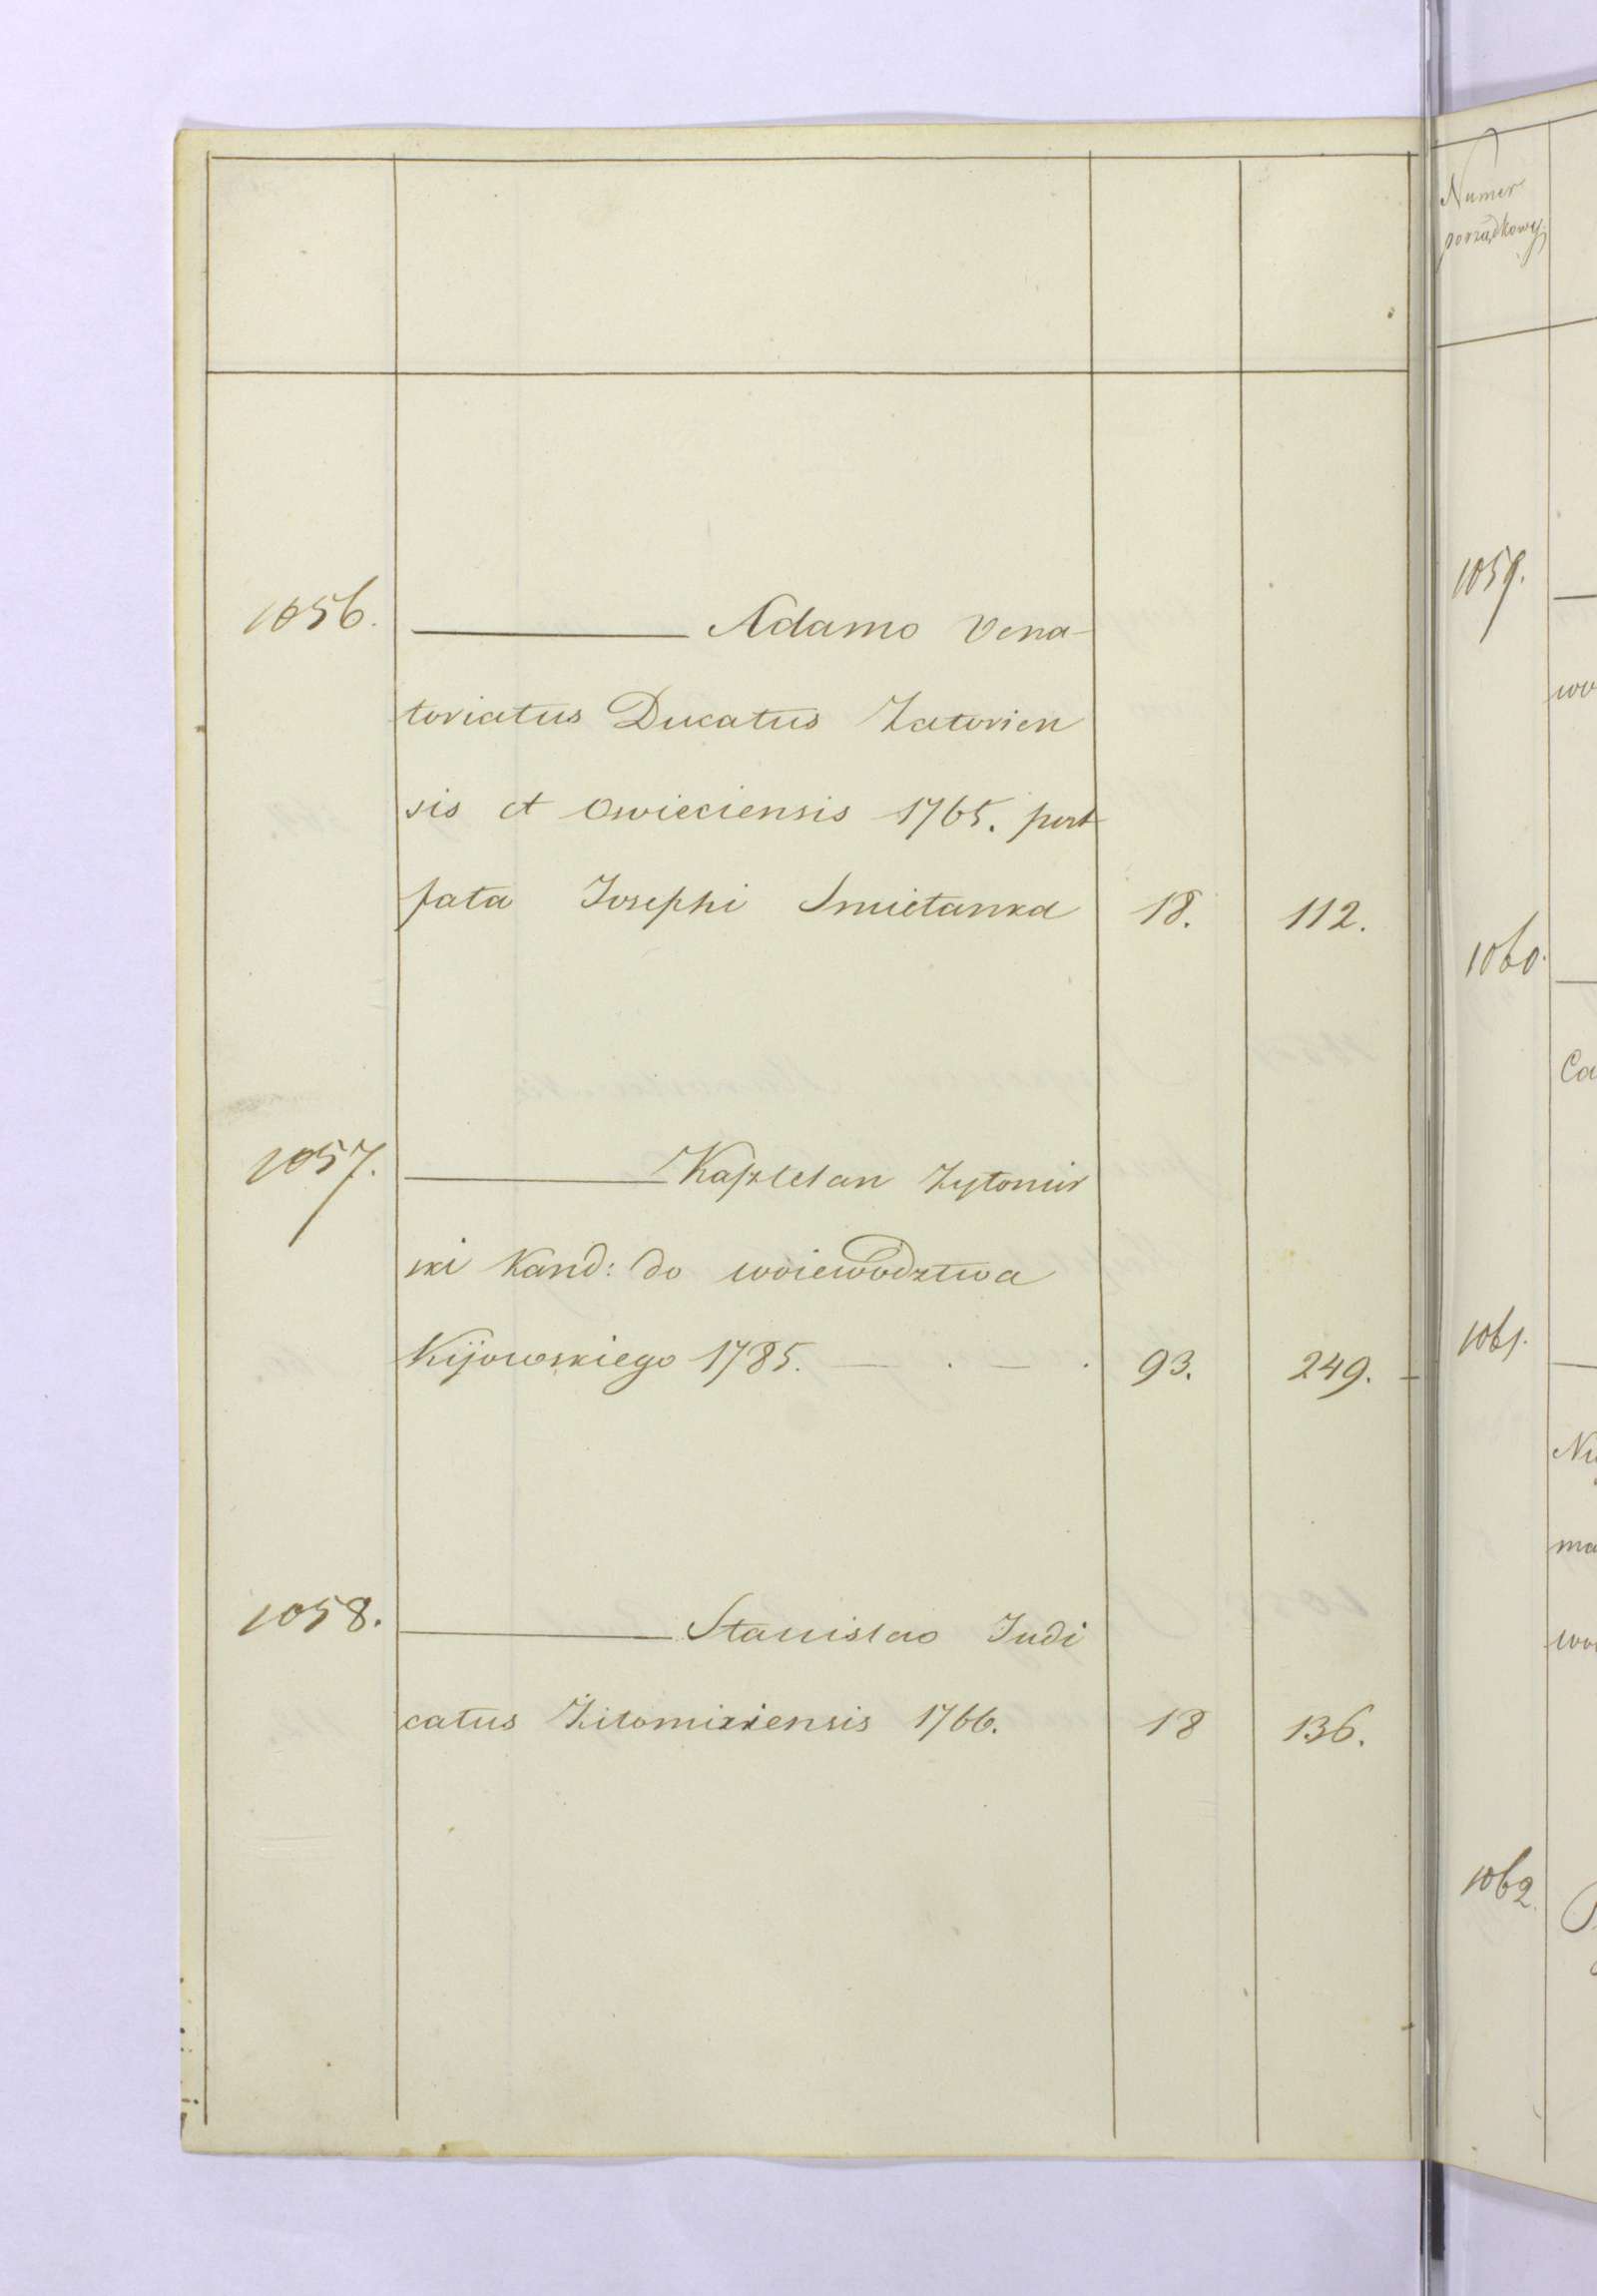 1056. ——— Adamo Vena-
toriatus Ducatus Zatorien
sis et Owieciensis 1765. post
fata Josephi Smietanka 18. 112.
1057. ——— Kasztelan Zytomir
ski Kand: do woiewodztwa
Kijowskiego 1785. — . — . 93. 249.
1058. ——— Stanislao Judi
catus Żitomiriensis 1766. 18 136.
Numer
porządkowy
1059.
wo
1060.
Ca
1061.
ma
1062.